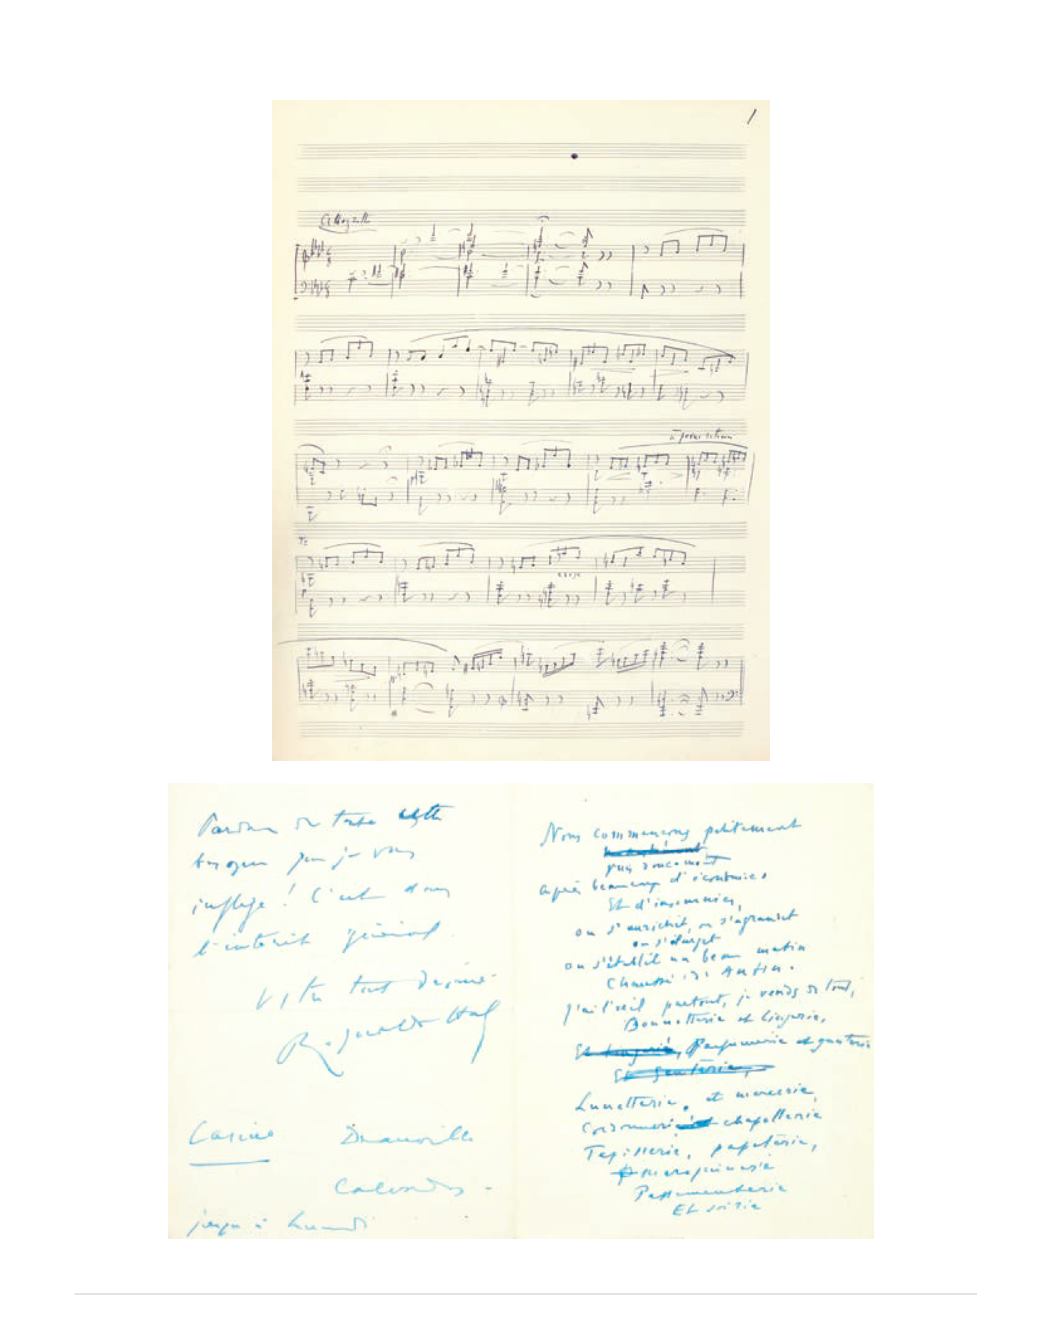 1
Allegretto
Pardon de toute cette
besogne que je vous
inflige ! C'est dans
l'intérêt général.
Votre tout dévoué
Reynaldo Hahn
Casino Deauville
Calvados -
jusqu'à lundi
Nous commençons petitement
puis doucement
après beaucoup d'économies
Et d'insomnies,
on s'enrichit, on s'agrandit
on s'élargit
on s'établit un beau matin
Chaussée d'Antin.
J'ai l'œil partout, je vends de tout,
Bonnetterie et lingerie,
Et lingerie, Parfumerie et ganterie
Et ganterie,
Lunetterie, et mercerie,
Cordonnerie et chapellerie
Tapisserie, papeterie,
maroquinerie
Passementerie
Et soirie